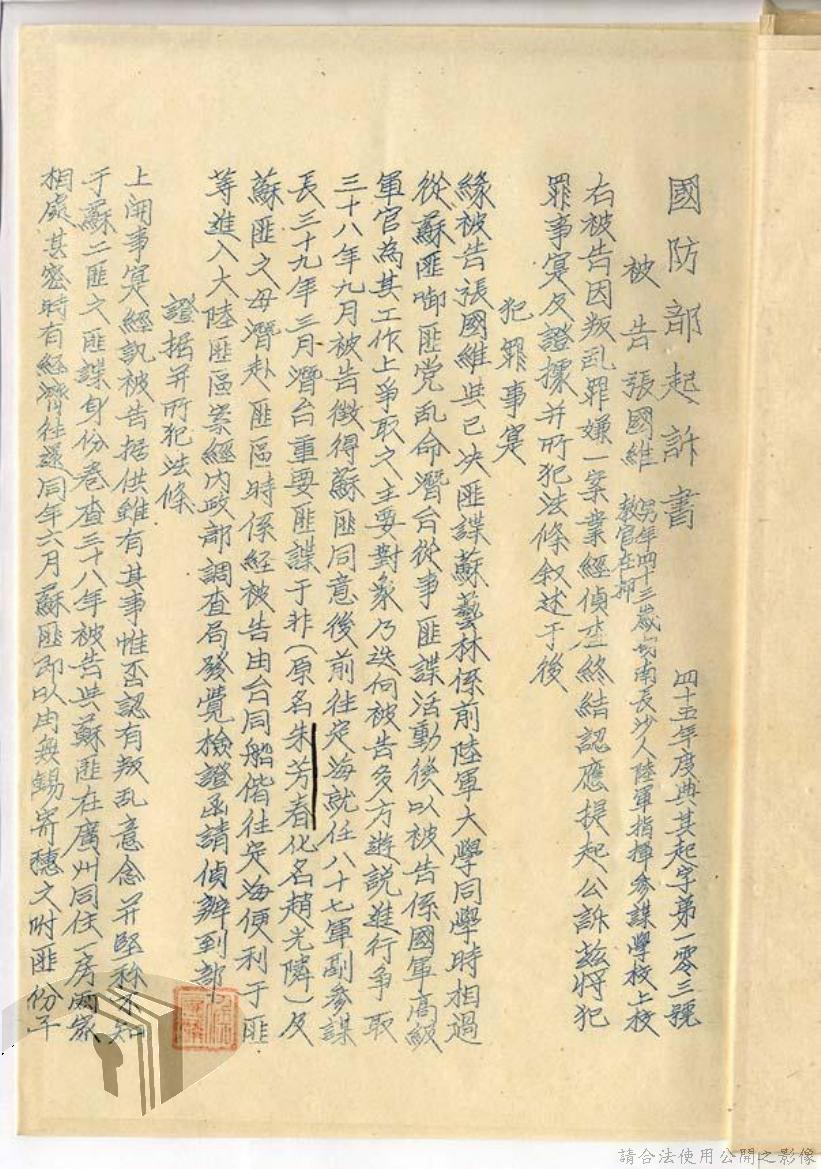 國防部起訴書
四十五年度典其起字第一零三號
被告張國維 男年四十三歲湖南長沙人陸軍指揮參謀學校上校
教官在押
右被告因叛乱罪嫌一案業經偵查終結認應提起公訴茲將犯
罪事寔及證據并所犯法條叙述于後
犯罪事寔
緣被告張國維與已决匪諜蘇藝林係前陸軍大學同學時相過
從蘇匪啣匪党乱命潛台從事匪諜活動後以被告係國軍高級
軍官為其工作上爭取之主要對象乃迭向被告多方遊說進行爭取
三十八年九月被告徵得蘇匪同意後前往定海就任八十七軍副參謀
長三十九年三月潛台重要匪諜于非(原名朱芳春化名趙光隣)及
蘇匪之母潛赴匪區時係經被告由台同船偕往定海便利于匪
等進入大陸匪區案經內政部調查局發覺檢證函請偵辦到部
證据并所犯法條
上開事寔經訊被告据供雖有其事惟否認有叛乱意念并堅称不知
于蘇二匪之匪諜身份卷查三十八年被告與蘇匪在廣州同住一房兩家
相處甚密時有經濟往還同年六月蘇匪即以由無錫寄穗之附匪份子
請合法使用公開之影像